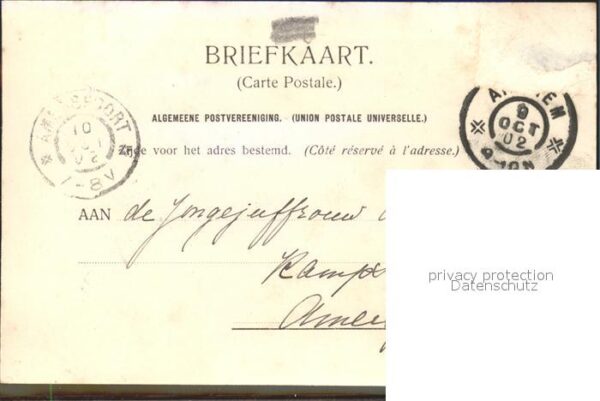 BRIEFKAART.
(Carte Postale.)
ALGEMEENE POSTVEREENIGING. (UNION POSTALE UNIVERSELLE.)
Zijde voor het adres bestemd. (Côté réservé à l'adresse.)
AMERSFOORT
10
OCT
02
7-8V
ARNHEM
9
OCT
02
9-10N
AAN de Jongejuffrouw
Kamp
privacy protection
Datenschutz